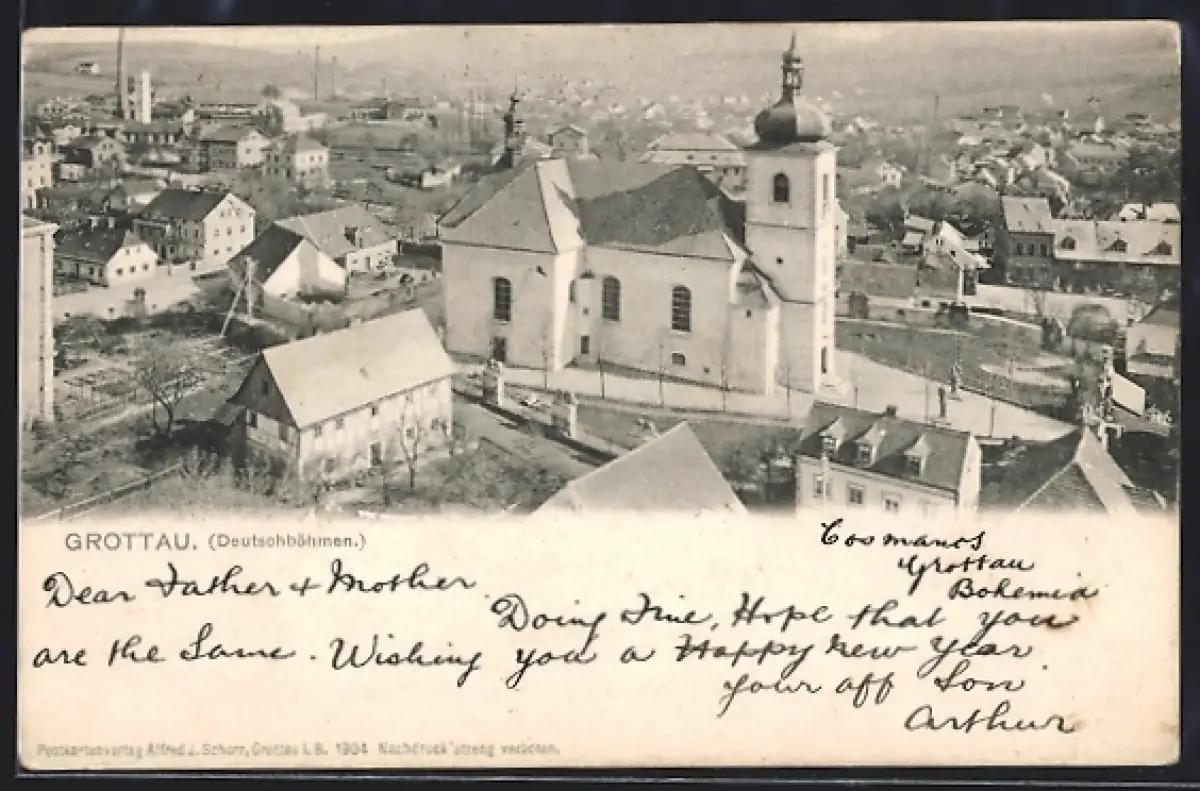 GROTTAU. (Deutschböhmen.)
Cosmanos
Grottau
Bohemia
Dear Father + Mother
Doing Fine, Hope that you
are the Same. Wishing you a Happy New Year
your aff Son
Arthur
Postkartenverlag Alfred J. Schorr, Grottau i. B. 1904 Nachdruck streng verboten.